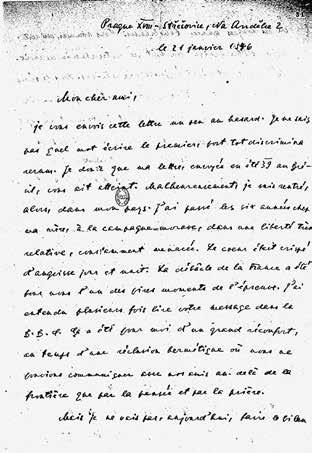 Prague XVIII - Střešovice, Na Andělce 2
le 21 janvier 1946
Mon cher ami,
je vous envoie cette lettre un peu au hasard. Je ne sais
pas quel mot écrire le premier: sont tot discrimina
rerum. Je crois que ma lettre, envoyée en été 39 au Bré-
sil, vous ait atteint. Malheureusement, je suis rentré,
alors, dans mon pays. J'ai passé les six années chez
ma mère, à la campagne morave, dans une liberté très
relative, constamment menacée. Le coeur était crispé
d'angoisse jour et nuit. La débâcle de la France a été
pour nous l'un des pires moments de l'épreuve. J'ai
entendu plusieurs fois lire votre message dans la
B.B.C. Ça a été pour moi d'un grand réconfort,
au temps d'une réclusion hermétique où nous ne
pouvions communiquer avec nos amis au delà de la
frontière que par la pensée et par la prière.
Mais je ne vais pas, aujourd'hui, faire le bilan